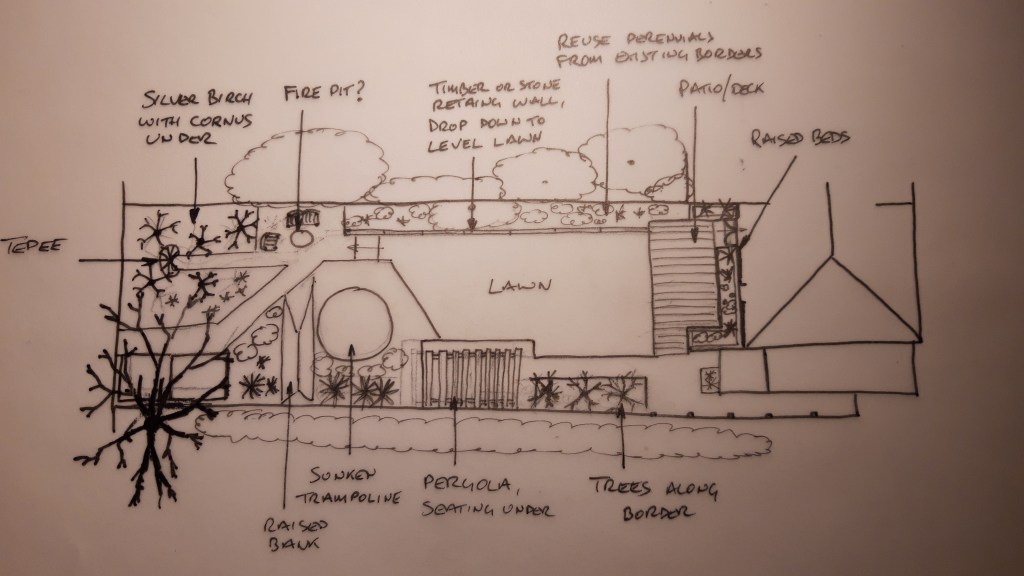 REUSE PERENNIALS
FROM EXISTING BORDERS
SILVER BIRCH
WITH CORNUS
UNDER
FIRE PIT?
TIMBER OR STONE
RETAING WALL,
DROP DOWN TO
LEVEL LAWN
PATIO/DECK
RAISED BEDS
TEPEE
LAWN
SUNKEN
TRAMPOLINE
PERGOLA,
SEATING UNDER
TREES ALONG
BORDER
RAISED
BANK